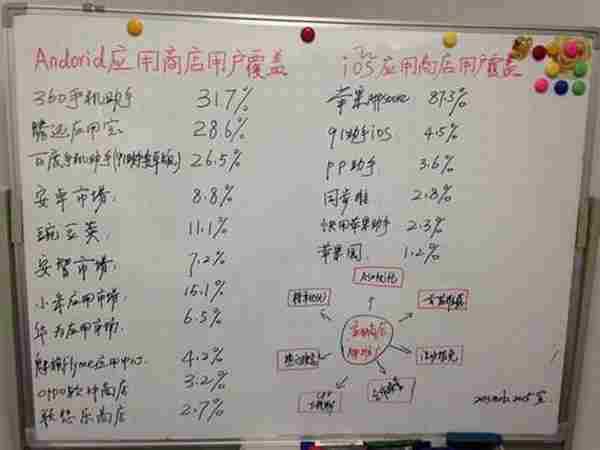 Andorid应用商店用户覆盖
360手机助手 31.7%
腾迅应用宝 28.6%
百度手机助手(91助手安卓版) 26.5%
安卓市场. 8.8%
豌豆荚. 11.1%
安智市场. 7.2%
小米应用市场. 15.1%
华为应用市场. 6.5%
魅族flyme应用中心. 4.2%
oppo软件商店 3.2%
联想乐商店 2.7%
iOS应用商店用户覆盖
苹果Appstore 87.3%
91助手iOS 4.5%
PP助手 3.6%
同步推 2.8%
快用苹果助手 2.3%
苹果园. 1.2%
ASO优化
应用商店